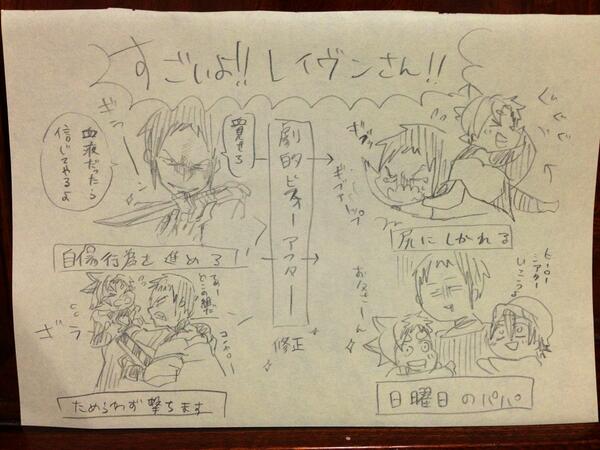 すごいよ!!レイヴンさん!!
ギラッ
血液だったら
信じてやるよ
血見せろ
自傷行為を進める
劇的ビフォーアフター
修正
ギブッ
ギブアーップ
ぐぐぐ
尻にしかれる
ギラ
あー?
どこの組だ
コルァー
ためらわず撃ちます
おなさーん
ヒーロー
シアター
いこうよ
日曜日のパパ